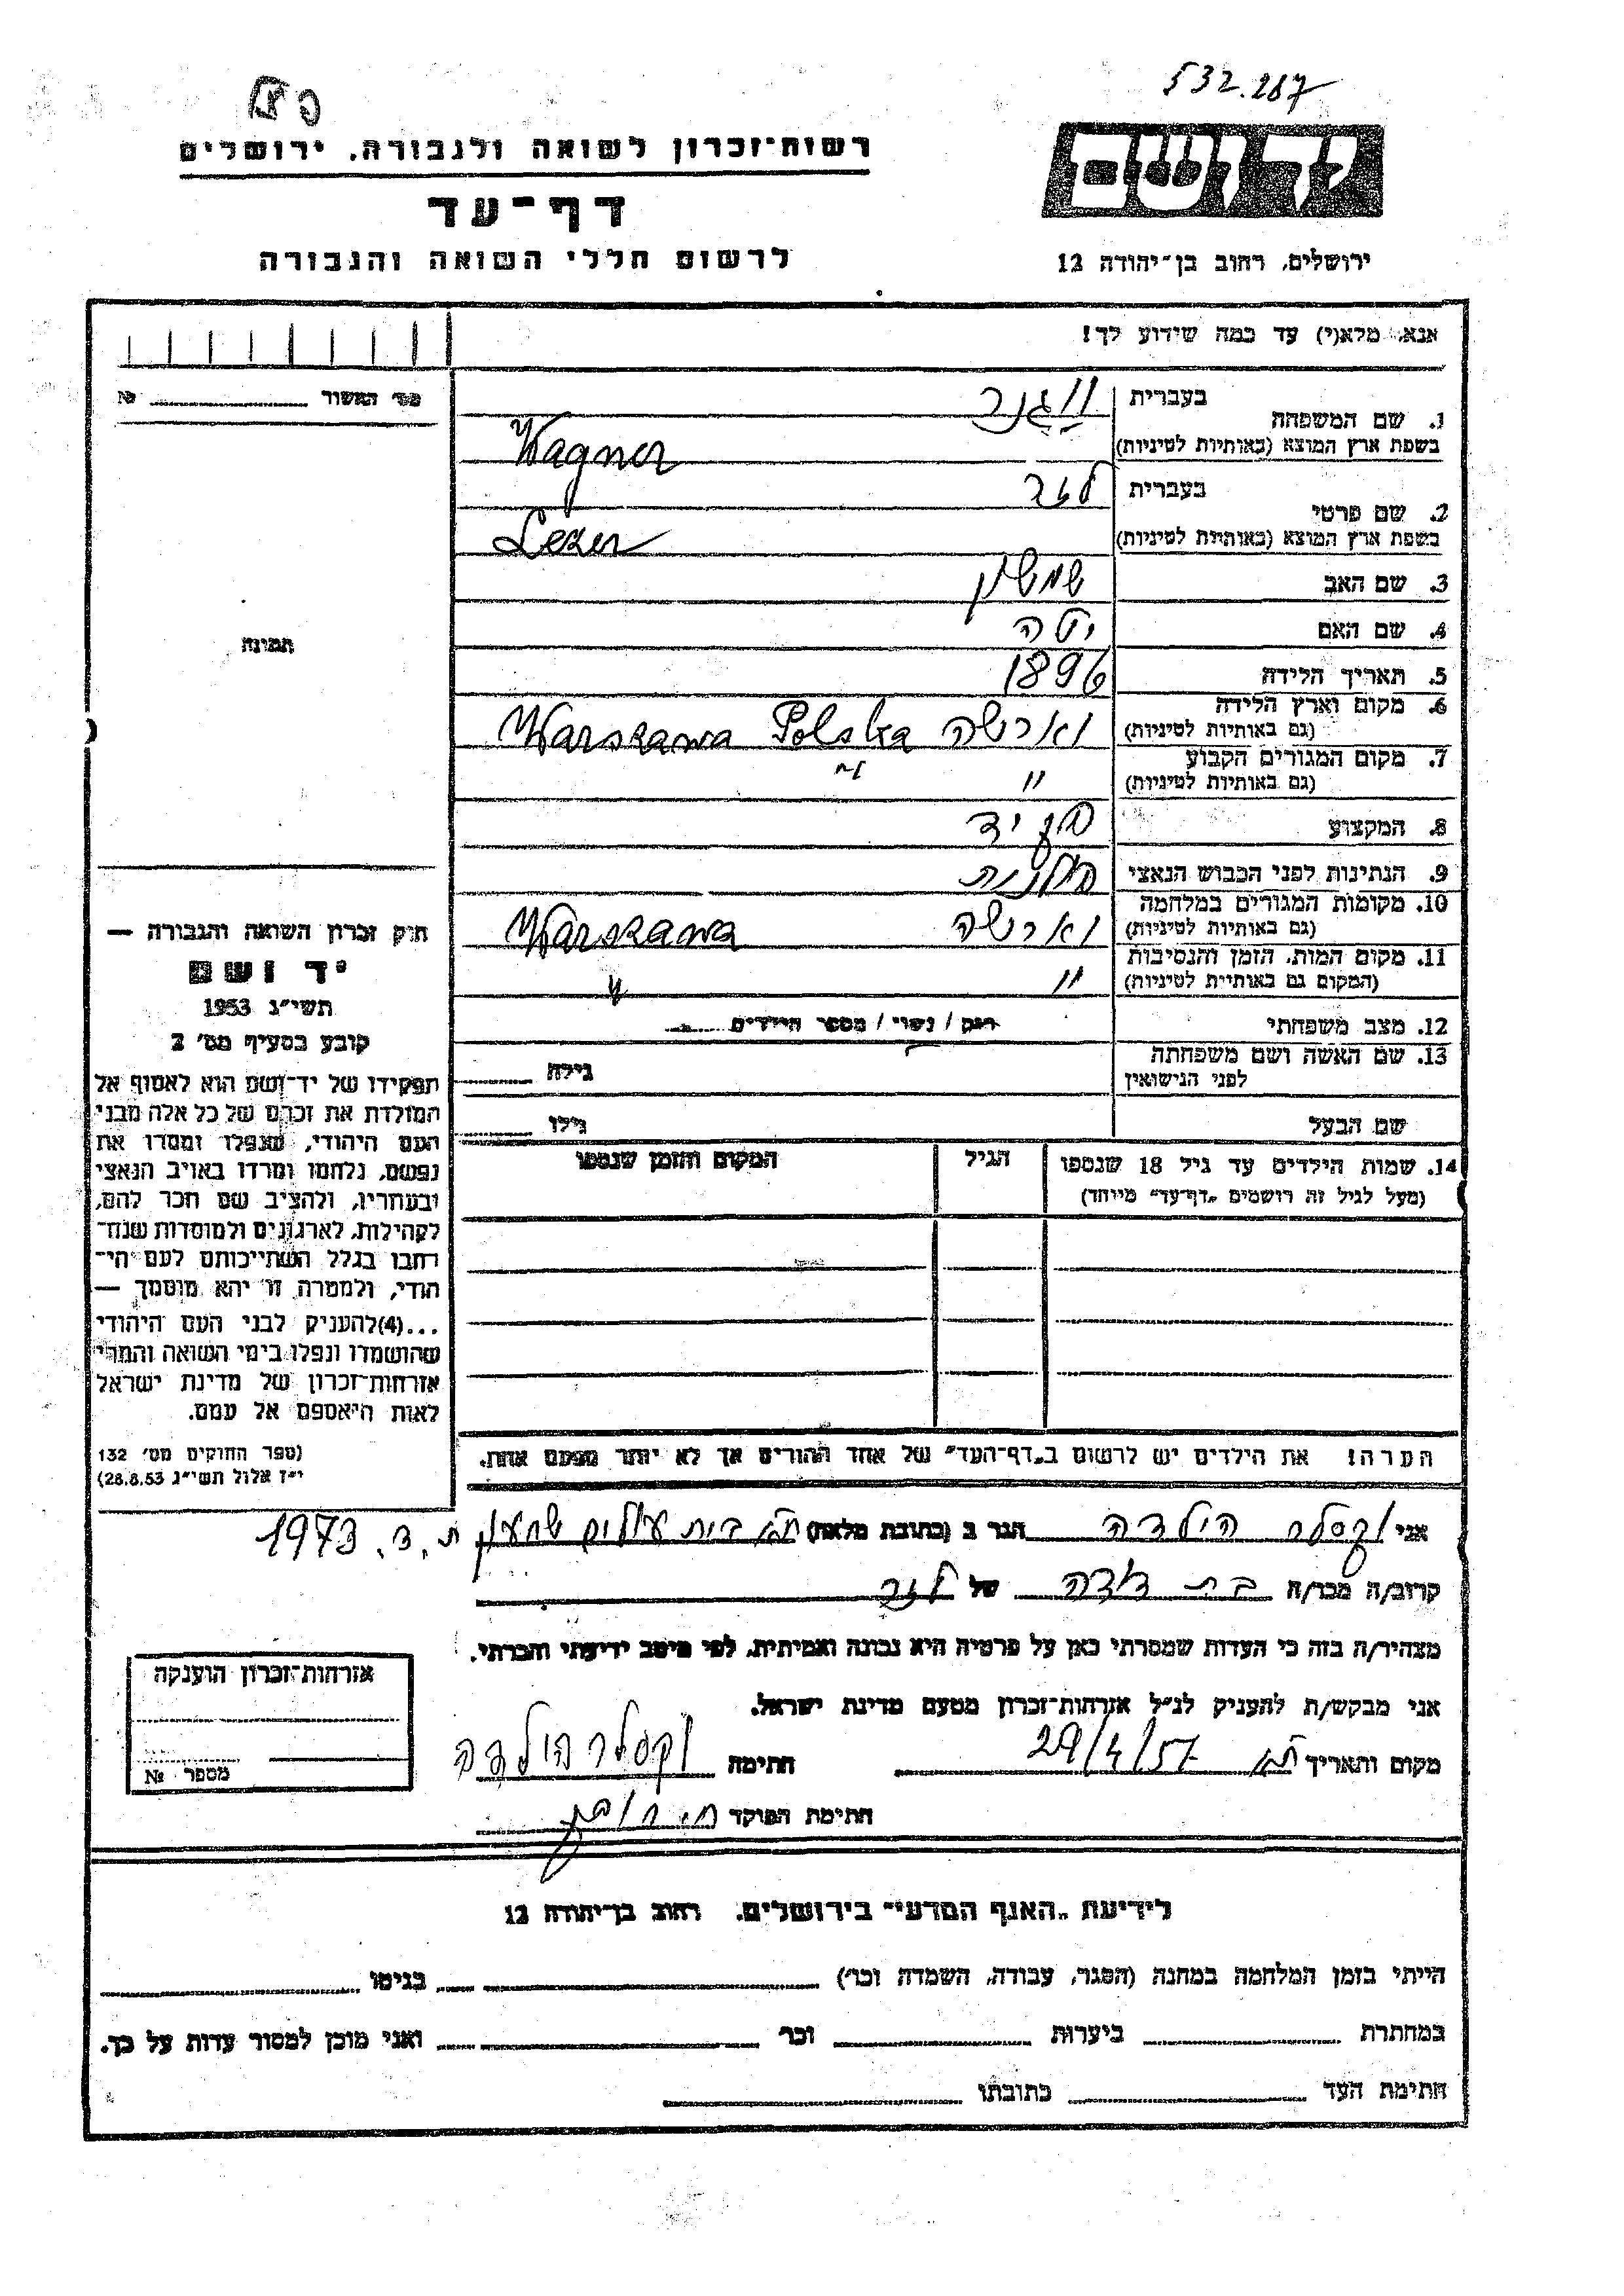 532.267
רשות־זכרון לשואה ולגבורה, ירושלים
ידושם
דף־עד
ירושלים, רחוב בן־יהודה 12
לרשום חללי השואה והגבורה
אנא, מלא(י) עד כמה שידוע לך!
מס' האשור № ________
1. שם המשפחה
בעברית ווגנר
בשפת ארץ המוצא (באותיות לטיניות) Wagner
2. שם פרטי
בעברית לזר
בשפת ארץ המוצא (באותיות לטיניות) Lezer
3. שם האב שמשון
4. שם האם יטה
5. תאריך הלידה 1896
6. מקום וארץ הלידה (גם באותיות לטיניות) ווארשה Warszawa Polska
7. מקום המגורים הקבוע (גם באותיות לטיניות) " "
8. המקצוע פקיד
9. הנתינות לפני הכבוש הנאצי פולנית
10. מקומות המגורים במלחמה (גם באותיות לטיניות) ווארשה Warszawa
11. מקום המות, הזמן והנסיבות (המקום גם באותיות לטיניות) " "
12. מצב משפחתי רווק / נשוי / מספר הילדים
13. שם האשה ושם משפחתה לפני הנישואין גילה
שם הבעל גילו
14. שמות הילדים עד גיל 18 שנספו הגיל המקום והזמן שנספו
(מעל לגיל זה רושמים "דף־עד" מיוחד)
הערה! את הילדים יש לרשום ב"דף־העד" של אחד ההורים אך לא יותר מפעם אחת.
תמונה
חוק זכרון השואה והגבורה —
יד ושם
תשי"ג 1953
קובע בסעיף מס' 2
תפקידו של יד־ושם הוא לאסוף אל
המולדת את זכרם של כל אלה מבני
העם היהודי, שנפלו ומסרו את
נפשם, נלחמו ומרדו באויב הנאצי
ובעוזריו, ולהציב שם וזכר להם,
לקהילות, לארגונים ולמוסדות שנח־
רבו בגלל השתייכותם לעם הי־
הודי, ולמטרה זו יהא מוסמך —
...(4)להעניק לבני העם היהודי
שהושמדו ונפלו בימי השואה והמרי
אזרחות־זכרון של מדינת ישראל
לאות היאספם אל עמם.
(ספר החוקים מס' 132
י"ז אלול תשי"ג 28.8.53)
אני וקסלר הילדה הגר ב (כתובת מלאה) ת"א בית עולים שמעון ת.ד. 1973
קרוב/ה מכר/ה בת דודה של לזר
מצהיר/ה בזה כי העדות שמסרתי כאן על פרטיה היא נכונה ואמיתית, לפי מיטב ידיעתי והכרתי.
אני מבקש/ת להעניק לנ"ל אזרחות־זכרון מטעם מדינת ישראל.
מקום ותאריך ת"א 29/4/57 חתימה וקסלר הילדה
חתימת הפוקד
אזרחות־זכרון הוענקה
מספר №
לידיעת "האגף המדעי" בירושלים, רחוב בן־יהודה 12
הייתי בזמן המלחמה במחנה (הסגר, עבודה, השמדה וכו') בגיטו
במחתרת ביערות וכו' ואני מוכן למסור עדות על כך.
חתימת העד כתובתו